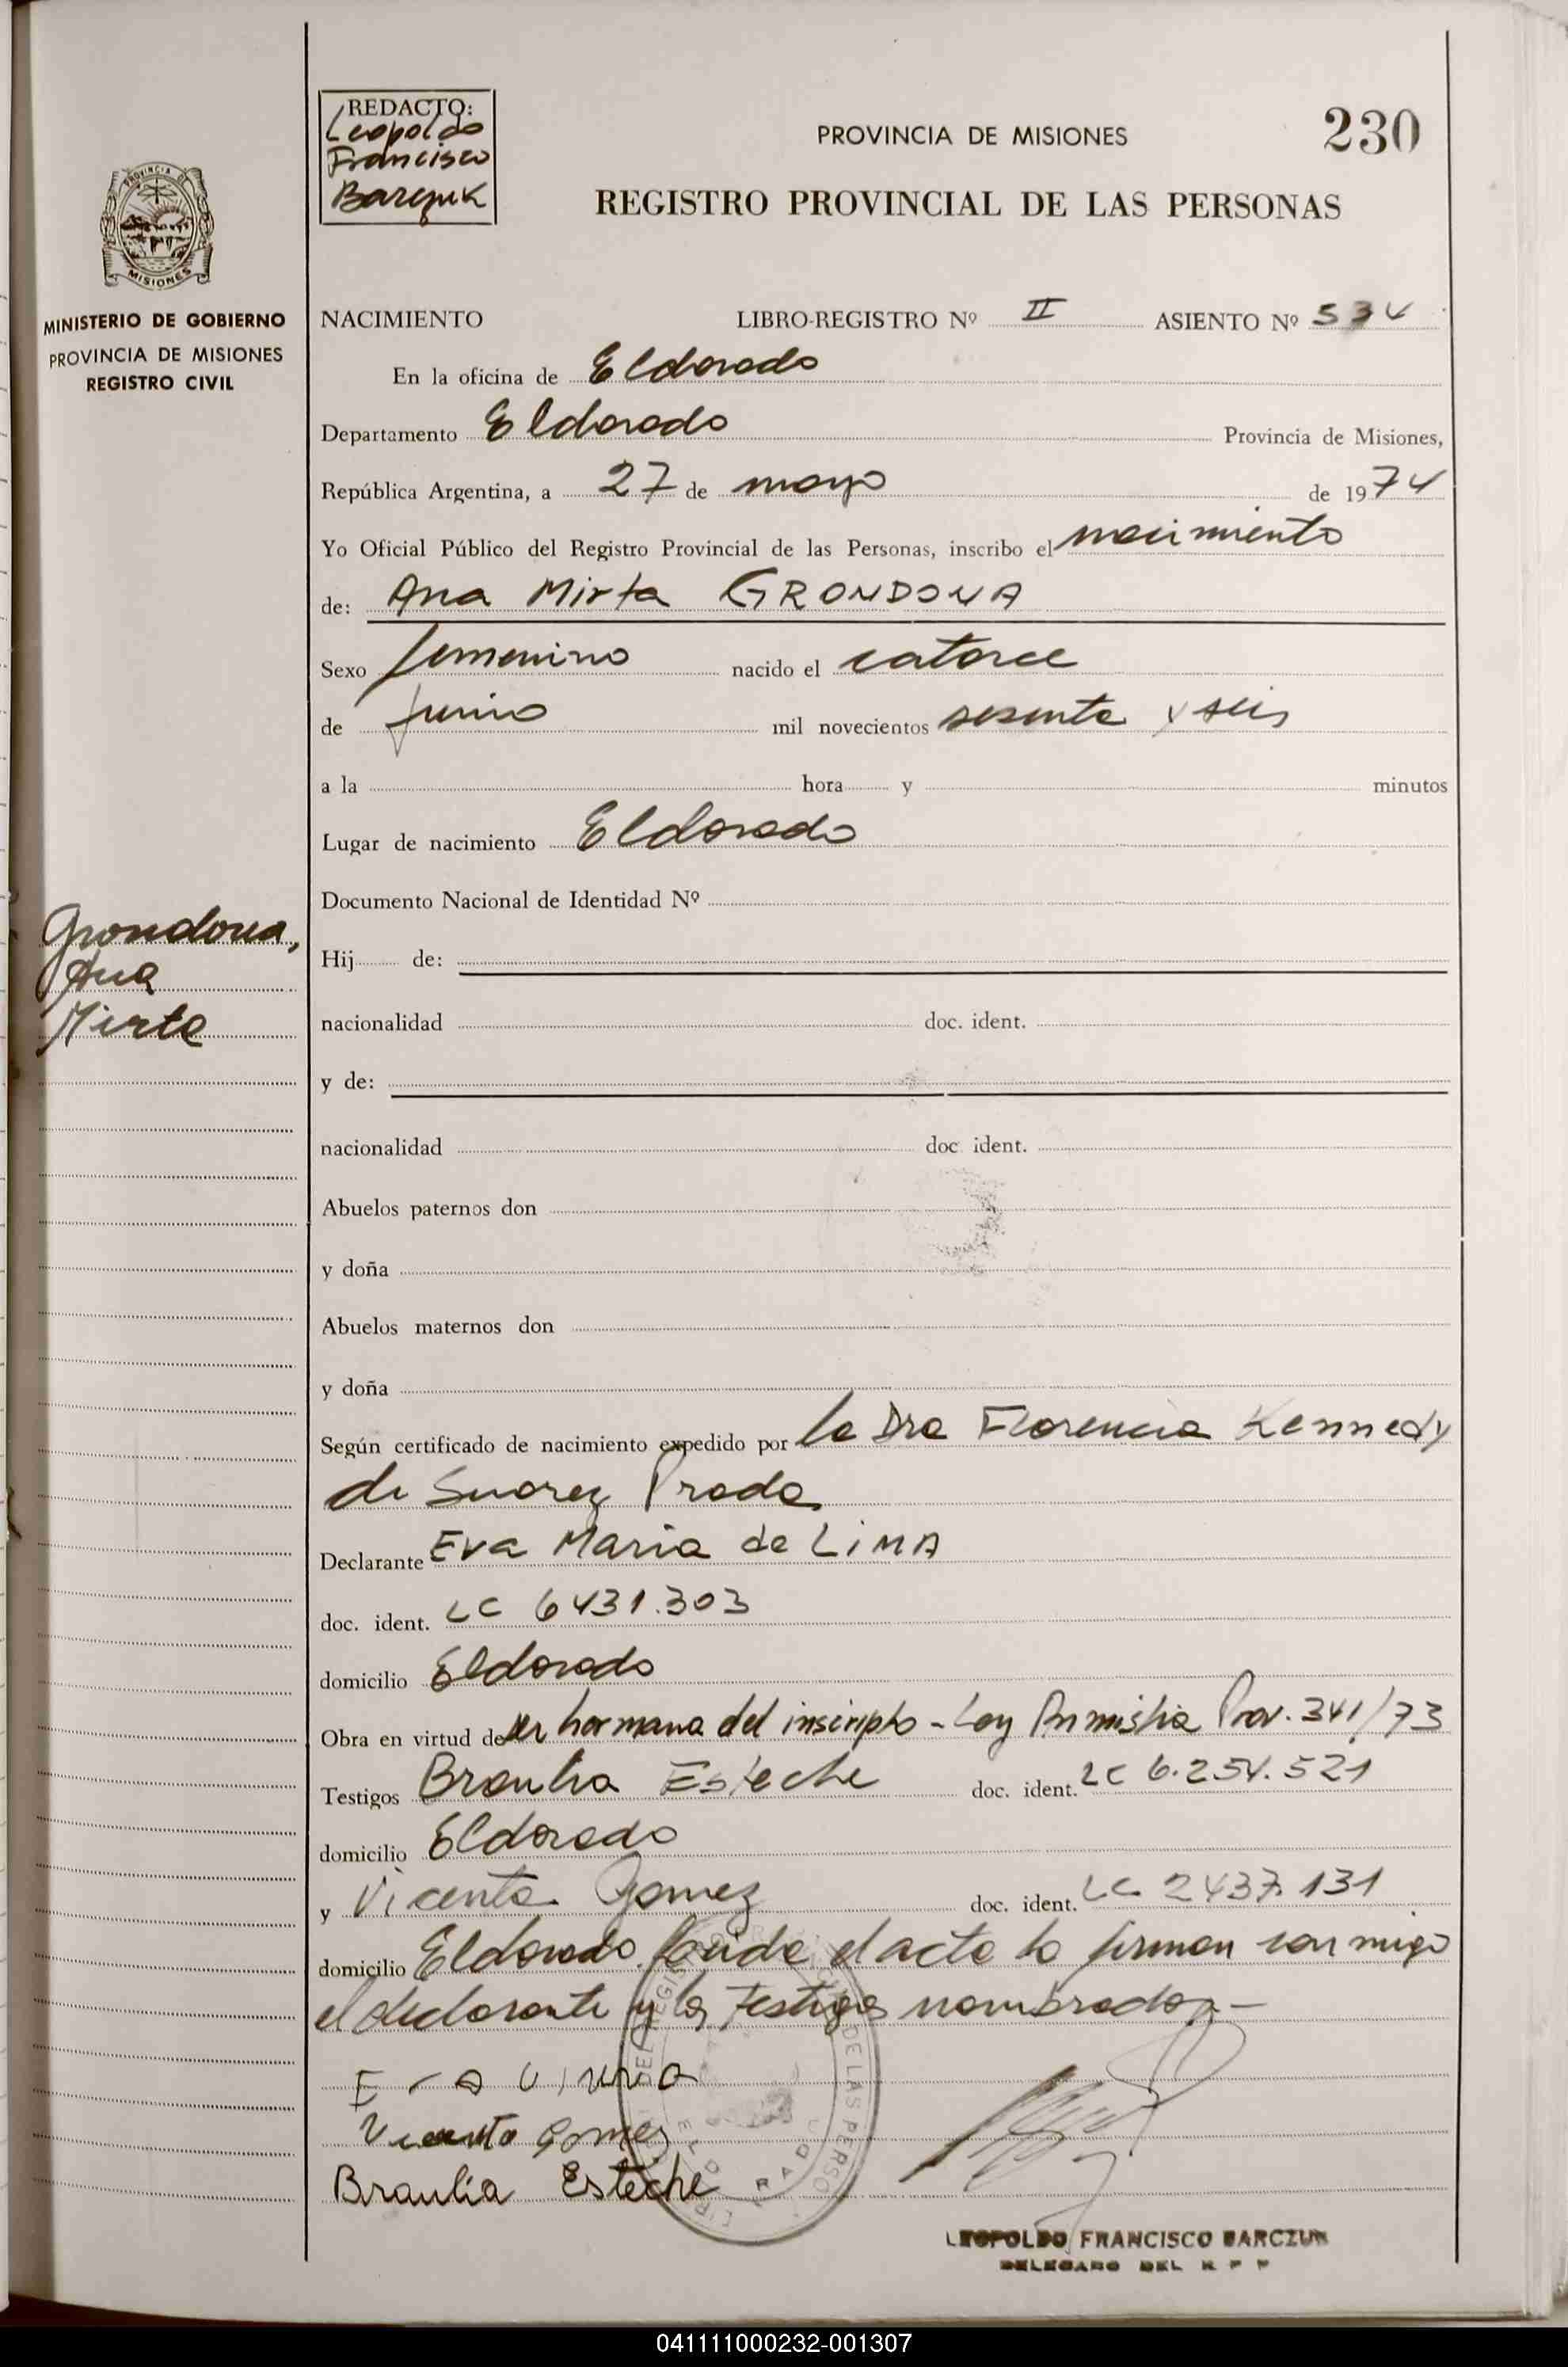 REDACTO:
Leopoldo
Francisco
Barczuk
PROVINCIA DE MISIONES
230
REGISTRO PROVINCIAL DE LAS PERSONAS
PROVINCIA DE
MISIONES
MINISTERIO DE GOBIERNO
PROVINCIA DE MISIONES
REGISTRO CIVIL
NACIMIENTO LIBRO-REGISTRO Nº II ASIENTO Nº 534
En la oficina de Eldorado
Departamento Eldorado Provincia de Misiones,
República Argentina, a 27 de mayo de 1974
Yo Oficial Público del Registro Provincial de las Personas, inscribo el nacimiento
de: Ana Mirta GRONDONA
Sexo femenino nacido el catorce
de junio mil novecientos sesenta y seis
a la hora y minutos
Lugar de nacimiento Eldorado
Documento Nacional de Identidad Nº
Grondona,
Ana
Mirta
Hij de:
nacionalidad doc. ident.
y de:
nacionalidad doc. ident.
Abuelos paternos don
y doña
Abuelos maternos don
y doña
Según certificado de nacimiento expedido por la Dra Florencia Kennedy
de Suarez Prado
Declarante Eva Maria de LIMA
doc. ident. LC 6431.303
domicilio Eldorado
Obra en virtud de ser hermana del inscripto - Ley Amnistia Prov. 341/73
Testigos Braulia Esteche doc. ident. LC 6.254.521
domicilio Eldorado
y Vicenta Gomez doc. ident. LC 2437.131
domicilio Eldorado. Leida el acta la firman con migo
el declarante y los testigos nombrados.-
Vicenta Gomez
Braulia Esteche
LEOPOLDO FRANCISCO BARCZUK
DELEGADO DEL R P P
041111000232-001307